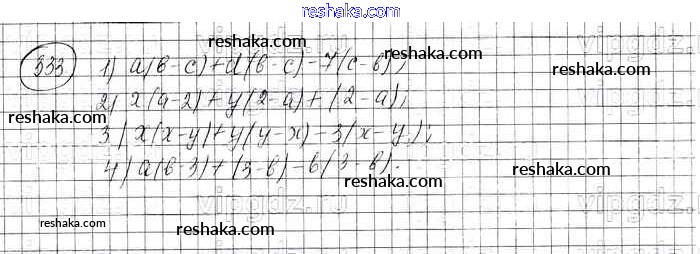 reshaka.com
333 1) a(в-c)+d(в-c)-7(c-в);
2) x(a-2)+y(2-a)+(2-a);
3) x(x-y)+y(y-x)-3(x-y);
4) a(в-3)+(3-в)-6(3-в).
reshaka.com
reshaka.com
reshaka.com
reshaka.com
reshaka.com
reshaka.com
reshaka.com
reshaka.com
reshaka.com
vipgdz.ru
vipgdz.ru